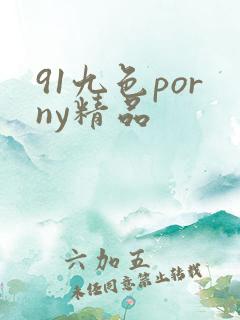 91九色por
ny精品
六加五
未经同意禁止转载